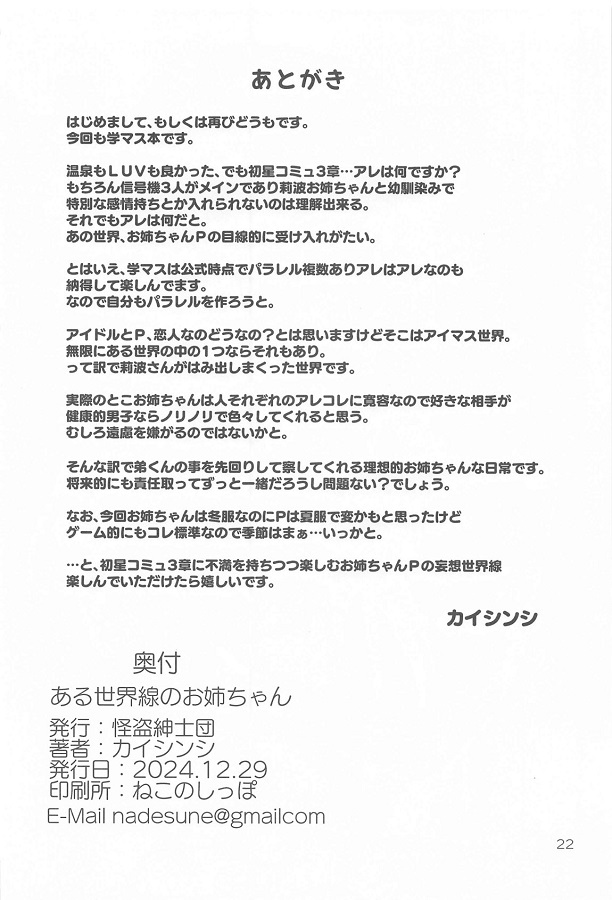 あとがき
はじめまして、もしくは再びどうもです。
今回も学マス本です。
温泉もLUVも良かった、でも初星コミュ3章…アレは何ですか？
もちろん信号機3人がメインであり莉波お姉ちゃんと幼馴染みで
特別な感情持ちとか入れられないのは理解出来る。
それでもアレは何だと。
あの世界、お姉ちゃんPの目線的に受け入れがたい。
とはいえ、学マスは公式時点でパラレル複数ありアレはアレなのも
納得して楽しんでます。
なので自分もパラレルを作ろうと。
アイドルとP、恋人なのどうなの？とは思いますけどそこはアイマス世界。
無限にある世界の中の1つならそれもあり。
って訳で莉波さんがはみ出しまくった世界です。
実際のとこお姉ちゃんは人それぞれのアレコレに寛容なので好きな相手が
健康的男子ならノリノリで色々してくれると思う。
むしろ遠慮を嫌がるのではないかと。
そんな訳で弟くんの事を先回りして察してくれる理想的お姉ちゃんな日常です。
将来的にも責任取ってずっと一緒だろうし問題ない？でしょう。
なお、今回お姉ちゃんは冬服なのにPは夏服で変かもと思ったけど
ゲーム的にもコレ標準なので季節はまぁ…いっかと。
…と、初星コミュ3章に不満を持ちつつ楽しむお姉ちゃんPの妄想世界線
楽しんでいただけたら嬉しいです。
カイシンシ
奥付
ある世界線のお姉ちゃん
発行：怪盗紳士団
著者：カイシンシ
発行日：2024.12.29
印刷所：ねこのしっぽ
E-Mail nadesune@gmailcom
22